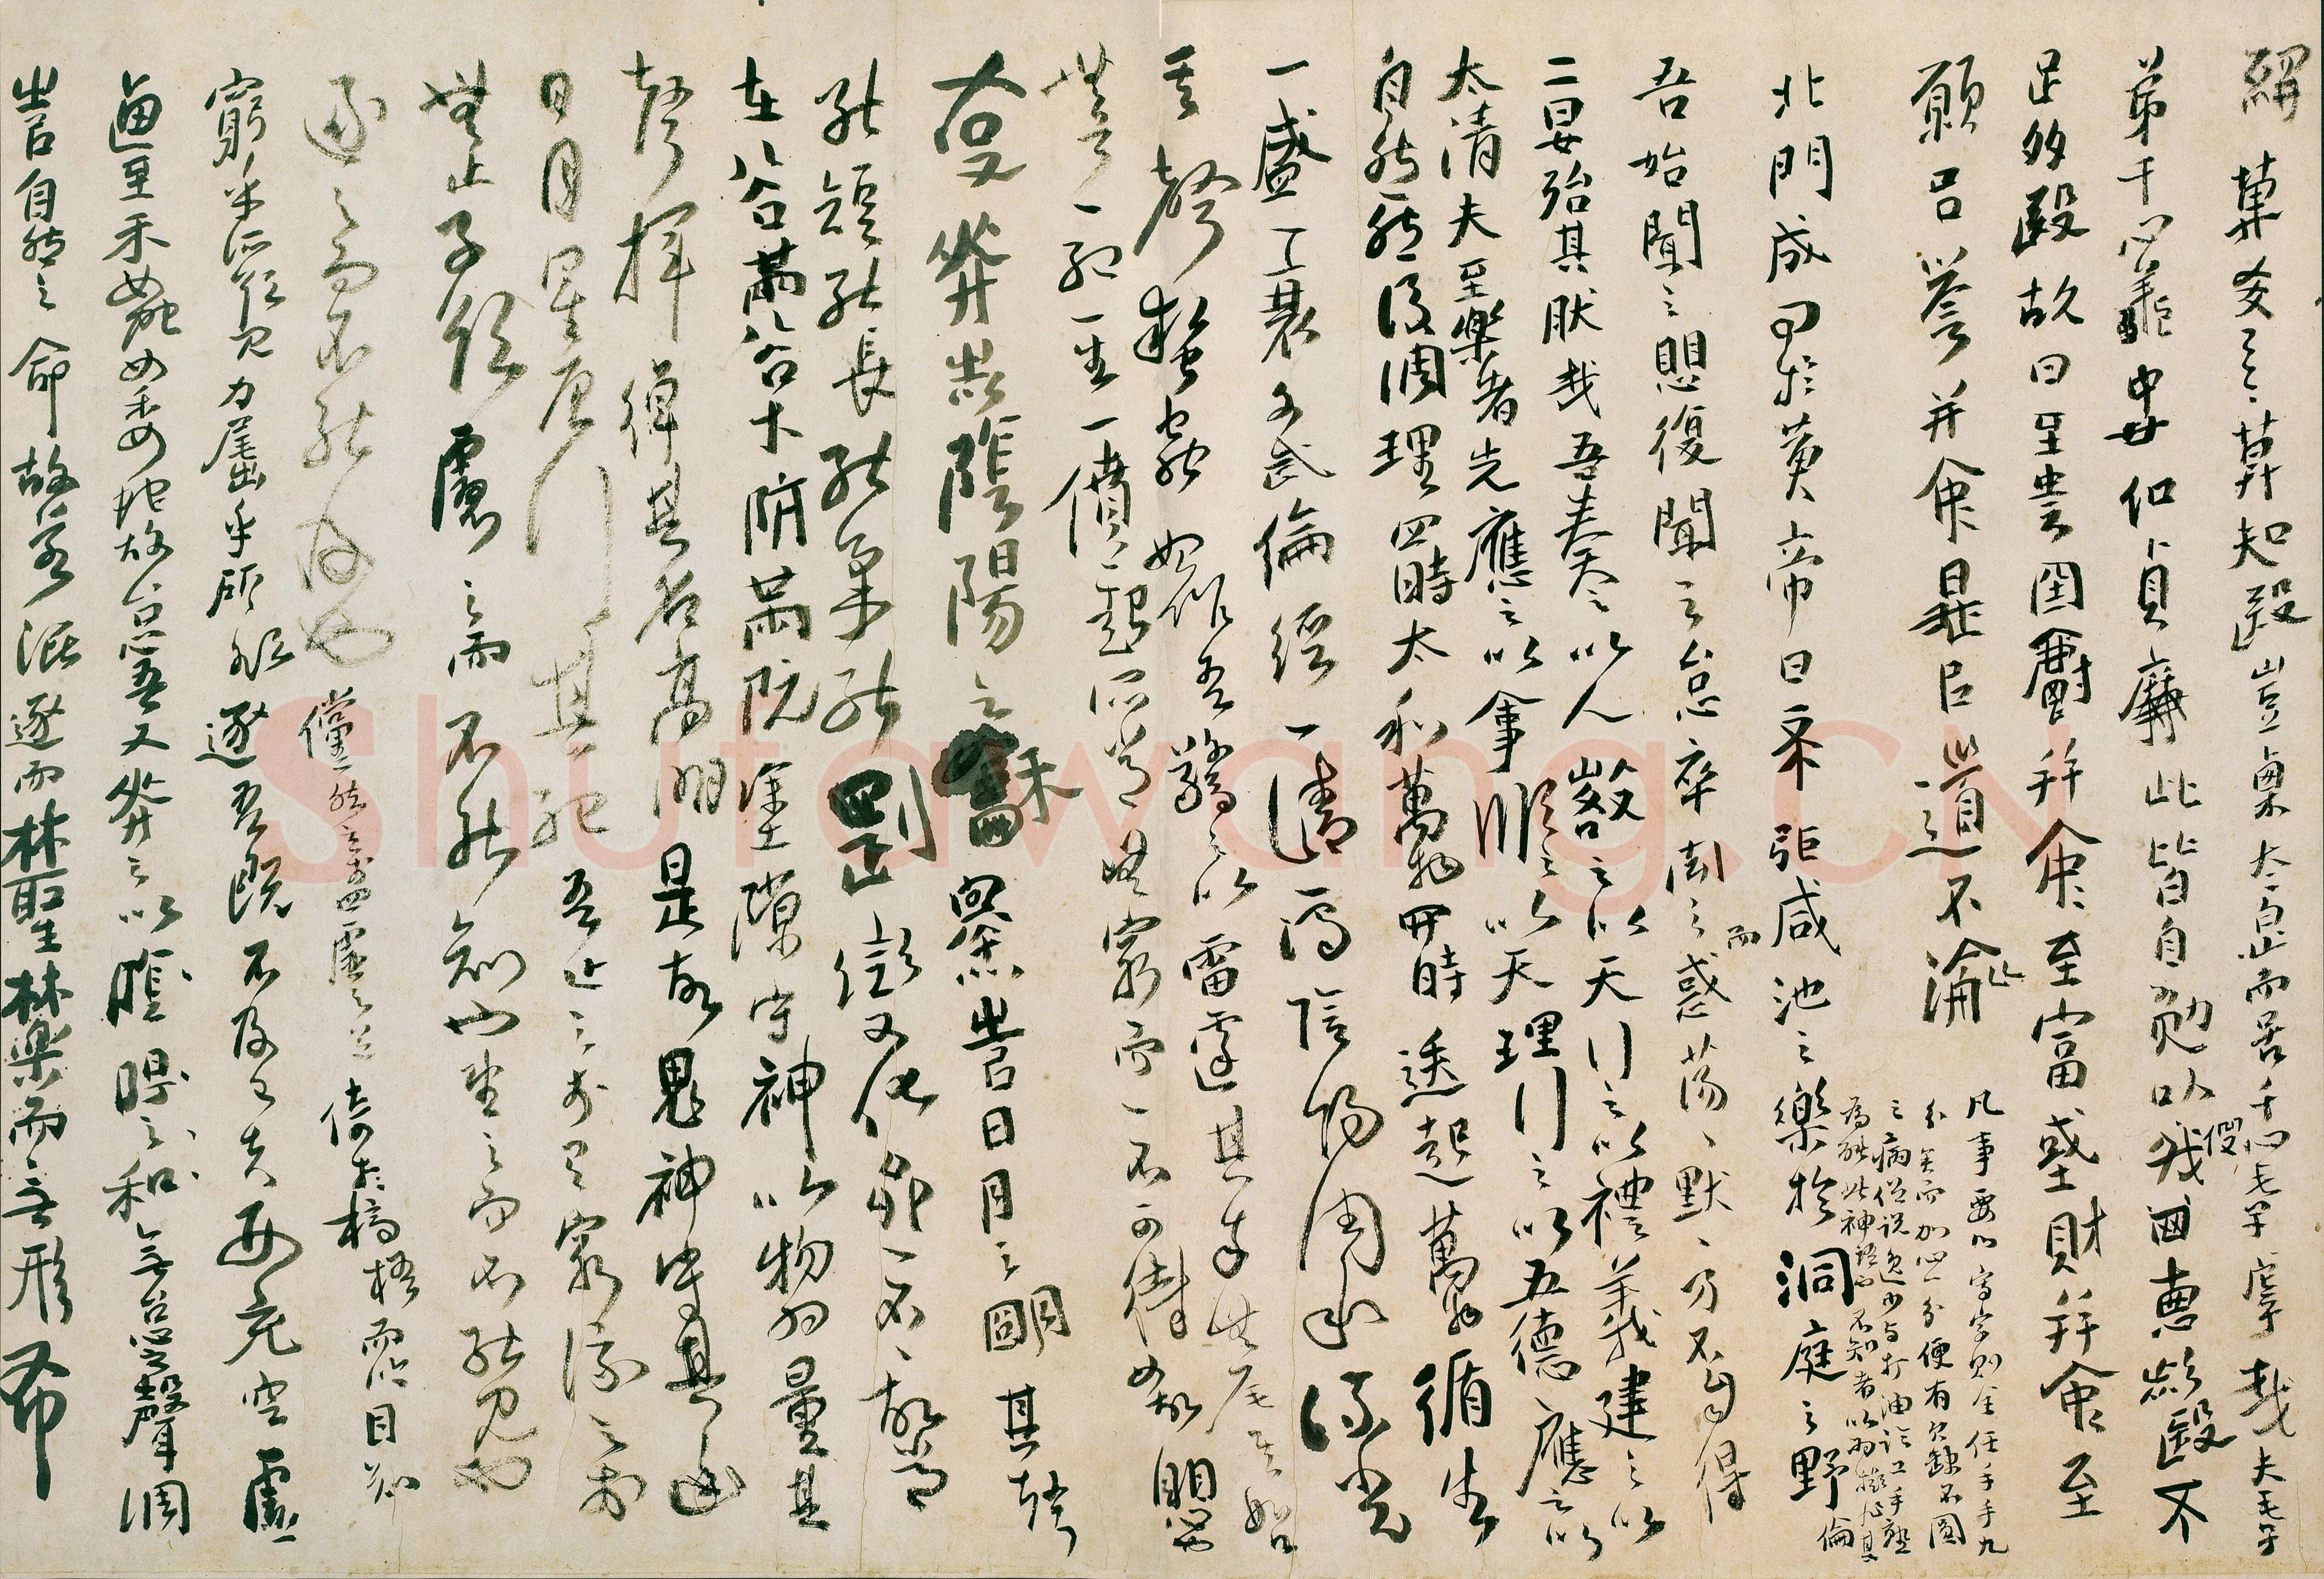 豈太息而言仁孝哉夫孝
弟仁義忠信貞廉此皆自勉以役惪不
足多故曰至貴國爵并至富國財并至
願名譽并是道不渝
凡事要心寫字則全任手手九
分矣而加心一分便有欠缺不圓
之病俗說手熟
為能此神語也不知者以為
北門成問於黃帝曰帝張咸池之樂於洞庭之野
吾始聞之懼復聞之怠卒聞之而惑蕩、默、乃不自得
曰女殆其然哉吾奏之以人徵之以天行之以禮義建之以
太清夫至樂者先應之以人事順之以天理行之以五德應之以
自然然後調理四時太和萬物四時迭起萬物循生
一盛一衰文武倫經一清一濁陰陽調和流光
其聲蟄蟲始作吾驚之以雷霆其卒無尾其始
無首一死一生一僨一起所常無窮而一不可待女故懼
吾又奏之以陰陽之和燭之以日月之明其聲
能短能長能柔能剛變化齊一不主故常
在谷滿谷在阬滿阬塗隙守神以物為量其
聲揮綽其名高明是故鬼神守其幽
日月星辰行其紀吾止之於有窮流之於
無止子欲慮之而不能知也望之而不能見也
逐之而不能及也儻然立於四虛之道倚於槁梧而吟目知
窮乎所欲見力屈乎所欲逐吾既不及已夫形充空虛
乃至委蛇女委蛇故怠吾又奏之以無怠之聲調
之以自然之命故若混逐而林生林樂而無形布